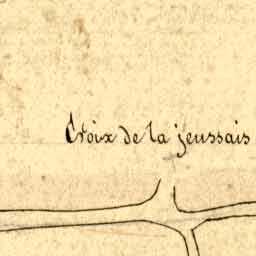 Croix de la jeussais